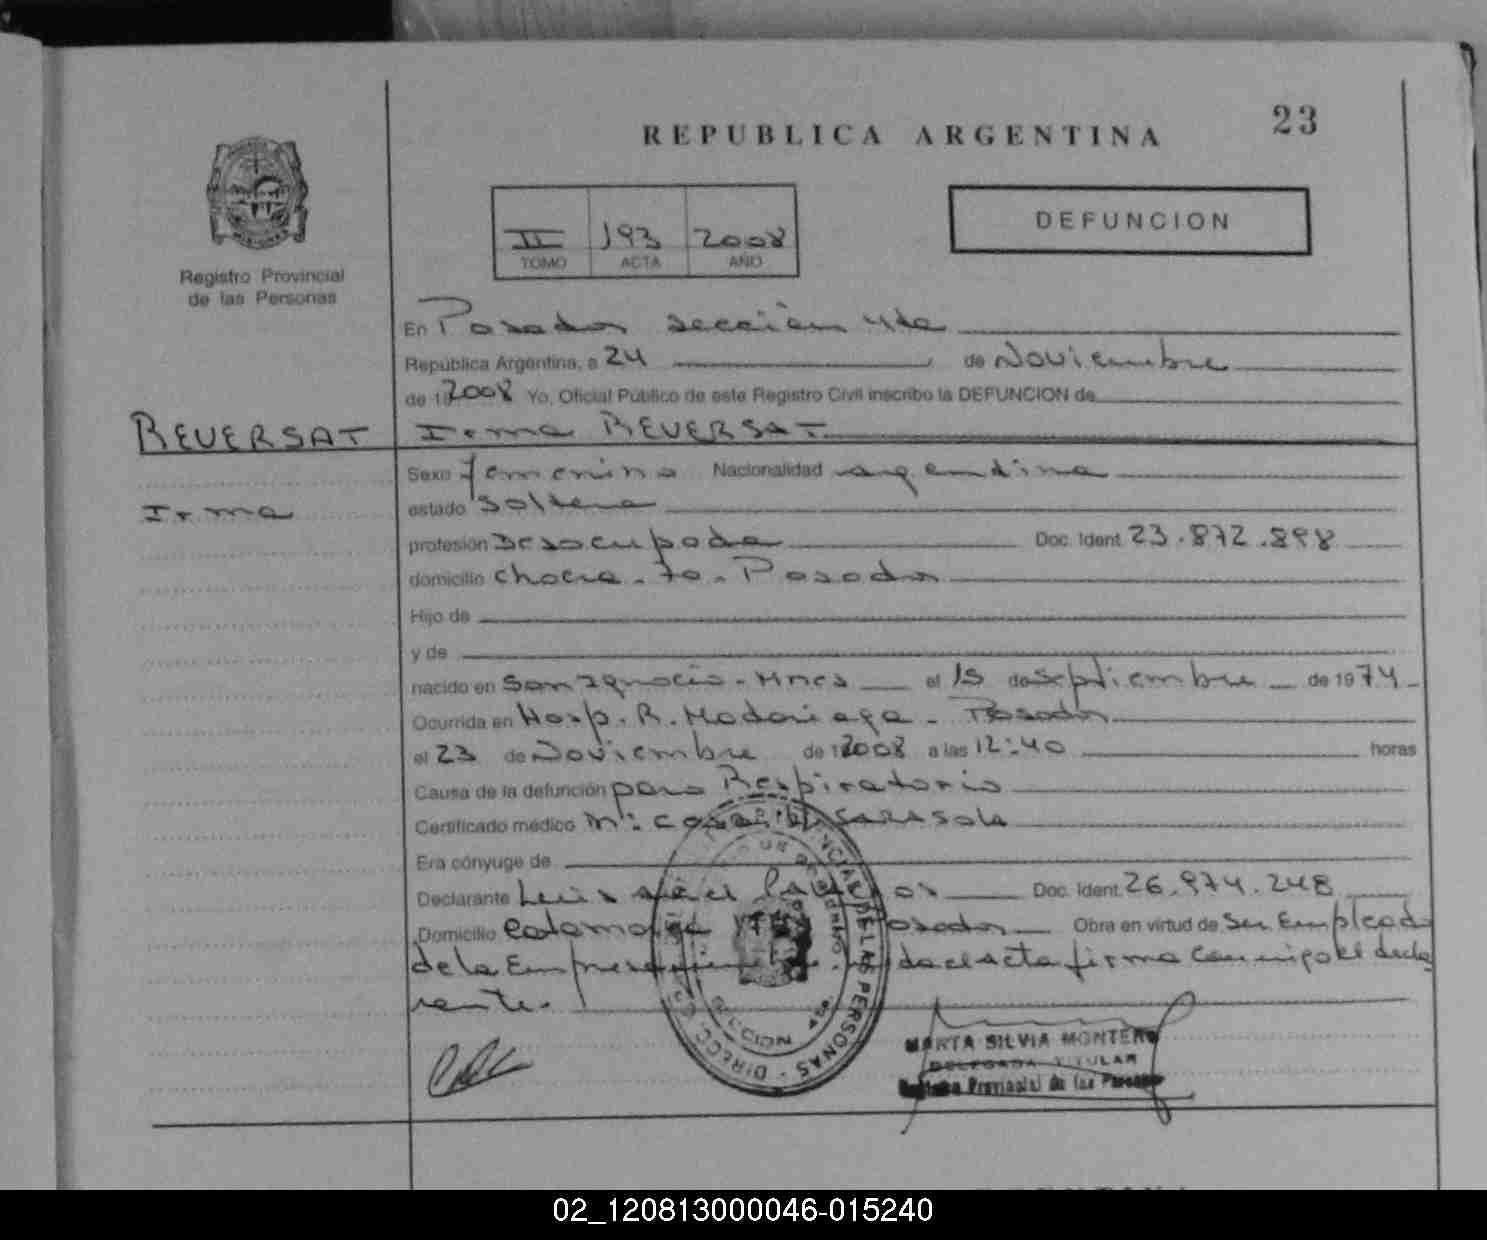 23
REPUBLICA ARGENTINA
II 193 2008
TOMO ACTA AÑO
DEFUNCION
Registro Provincial
de las Personas
En Posadas sección 4ta
República Argentina, a 24 de Noviembre
de 19 2008 Yo, Oficial Público de este Registro Civil inscribo la DEFUNCION de
REVERSAT Irma REVERSAT
Irma
Sexo femenino Nacionalidad argentina
estado Soltera
profesión Desocupada Doc. Ident. 23.872.898
domicilio Posadas
Hijo de
y de
nacido en San Ignacio - Mnes el 15 de Septiembre de 1974
Ocurrida en Hosp. R. Madariaga - Posadas
el 23 de Noviembre de 1 2008 a las 12:40 horas
Causa de la defunción paro Respiratorio
Certificado médico SARASOLA
Era cónyuge de
Declarante Luis Doc. Ident. 26.974.248
Domicilio Catamarca Posadas Obra en virtud de Ser Empleado
de la Empresa acta firma conmigo el decla
rante.
MARTA SILVIA MONTERO
DELEGADA TITULAR
Registro Provincial de las Personas
02_120813000046-015240